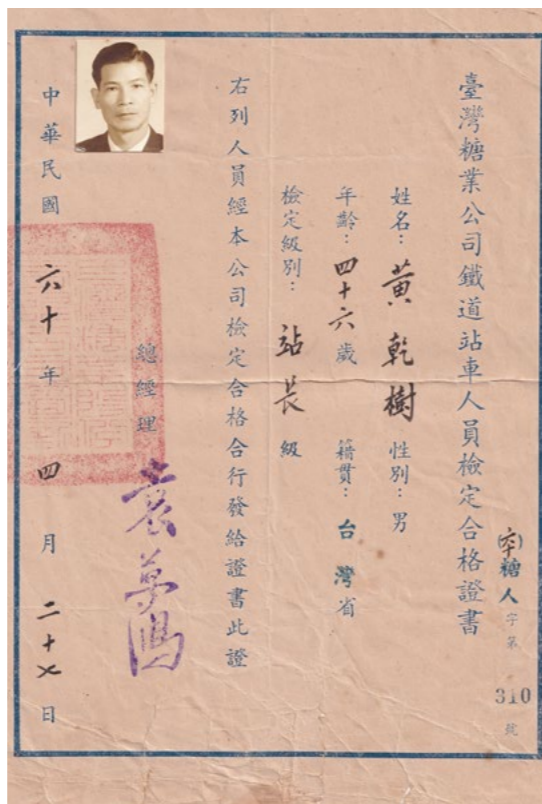 糖人字第310號
臺灣糖業公司鐵道站車人員檢定合格證書
姓名：黃乾樹 性別：男
年齡：四十六歲 籍貫：台灣省
檢定級別：站長級
右列人員經本公司檢定合格合行發給證書此證
總經理 袁夢鴻
中華民國六十年四月二十七日